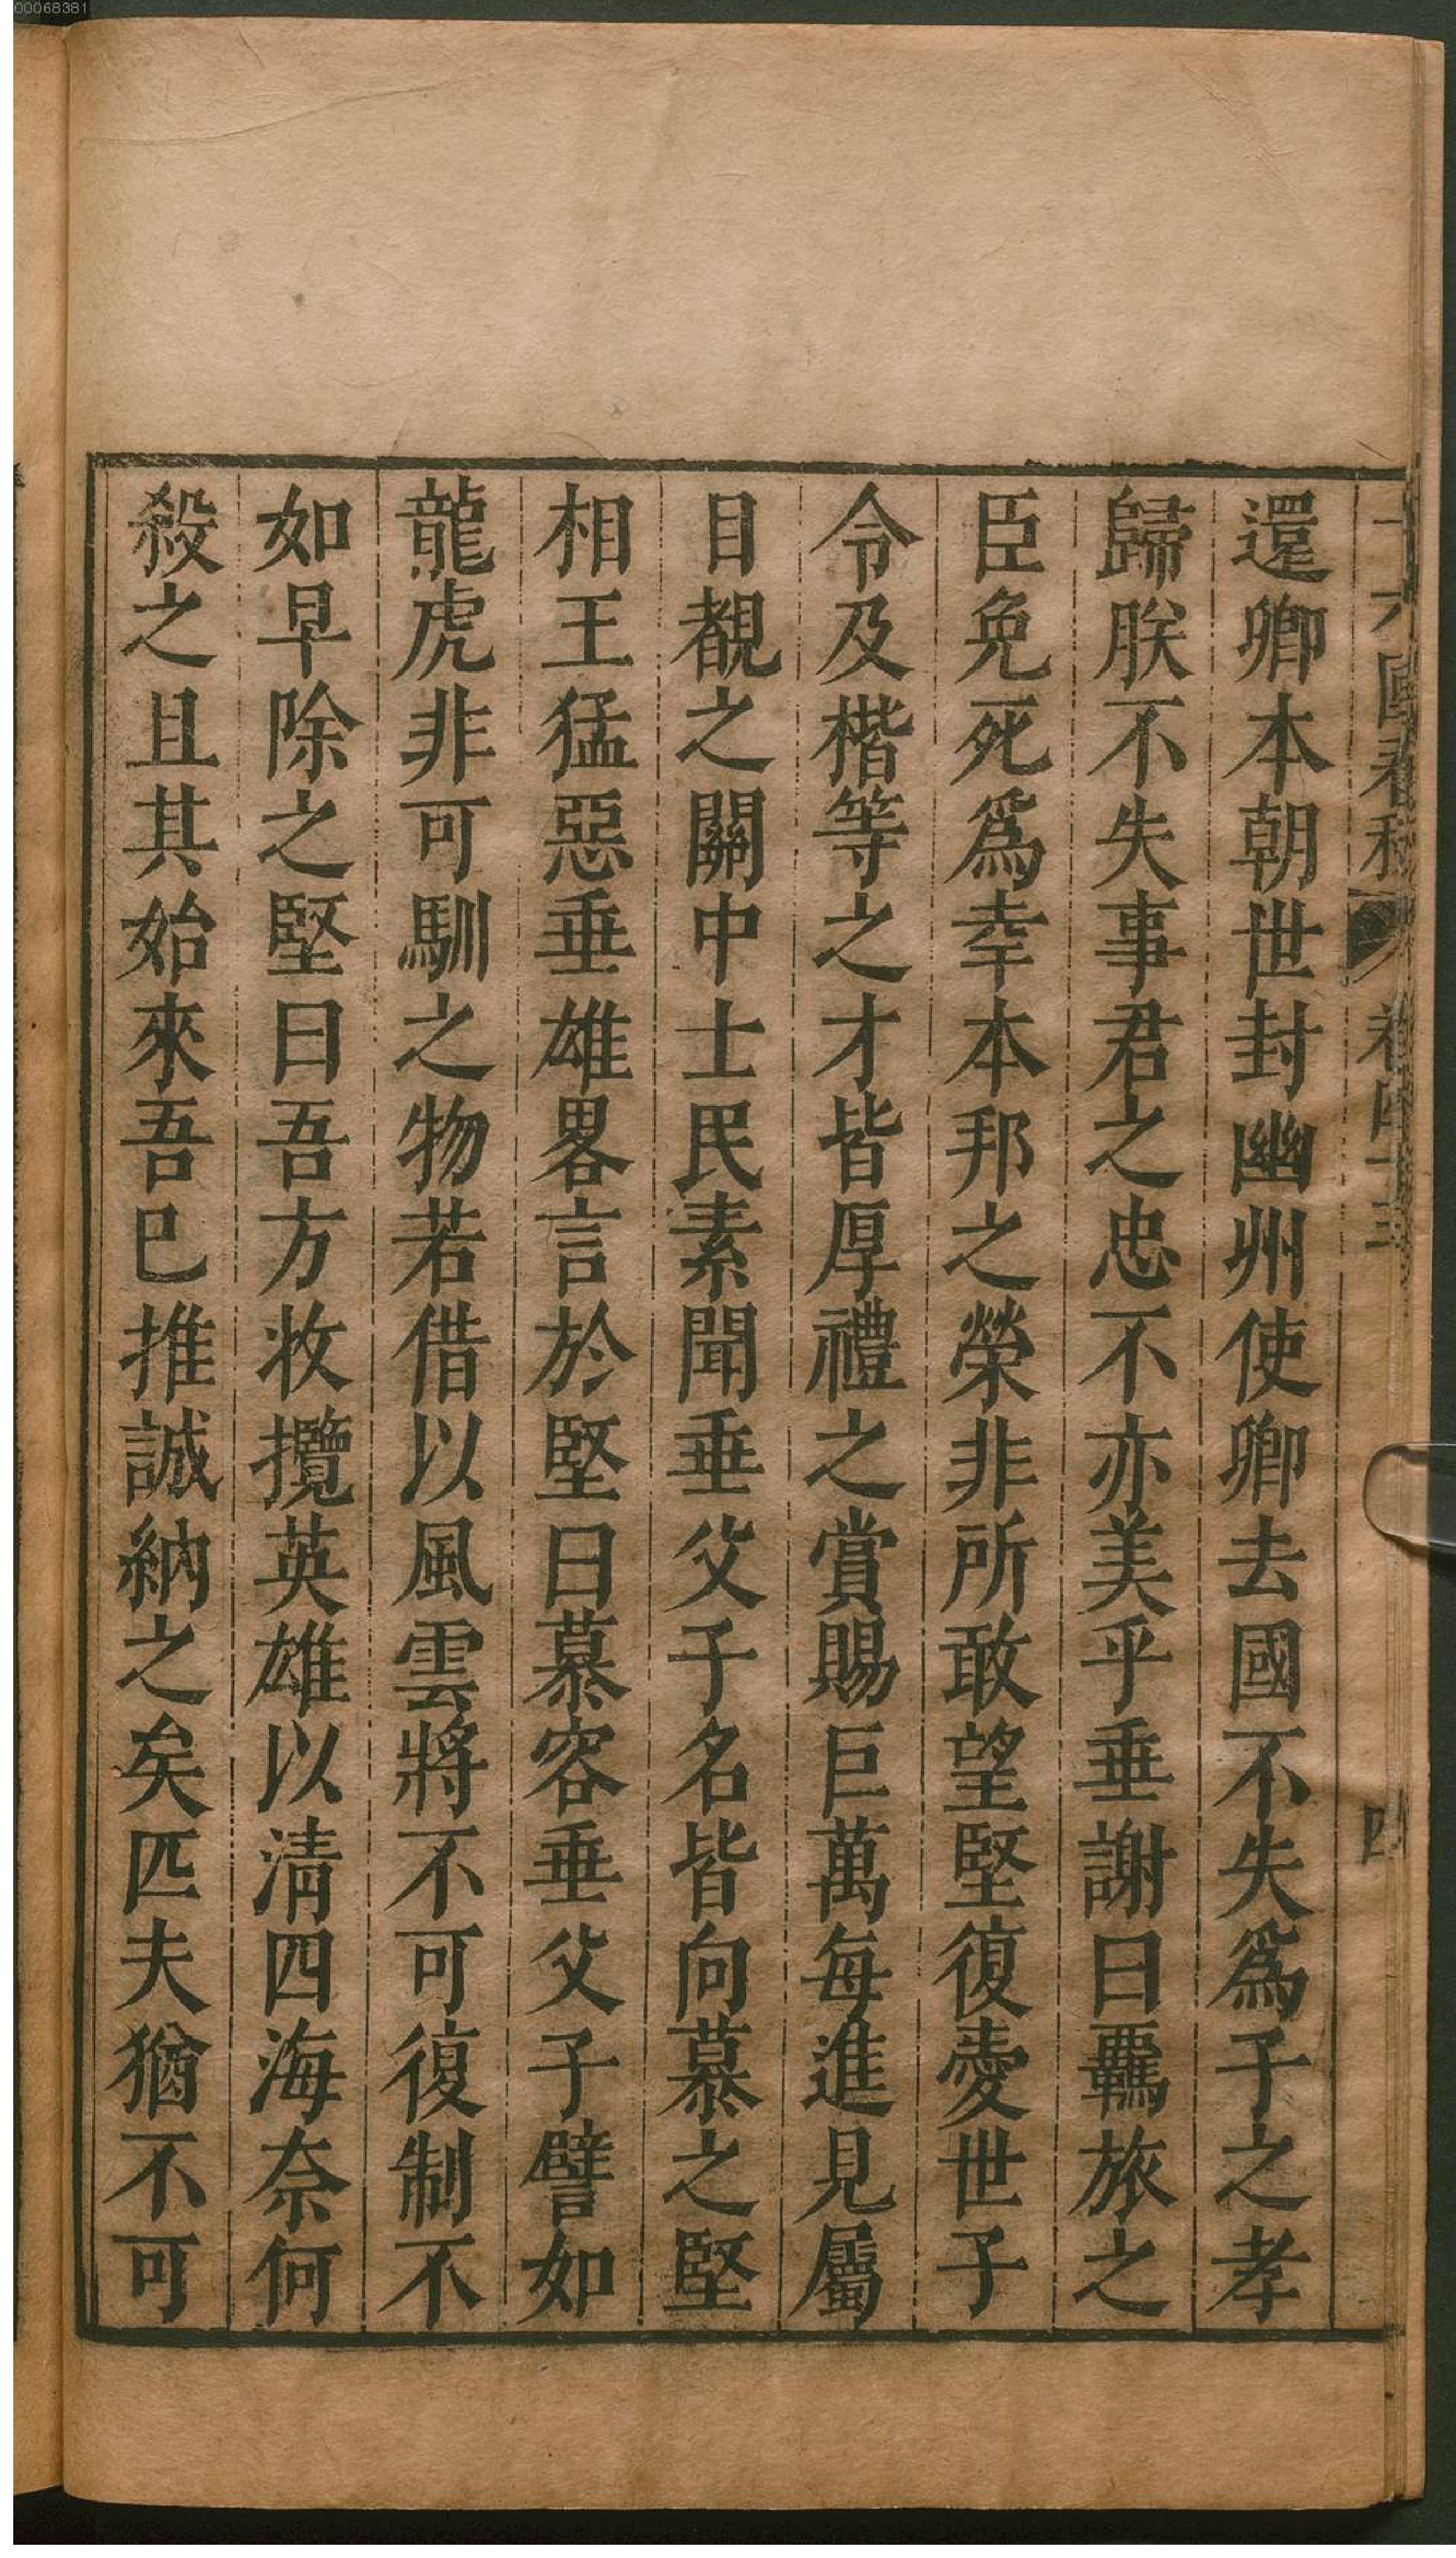 00068381
十六國春秋 卷四十三 四
還卿本朝世封幽州使卿去國不失爲子之孝
歸朕不失事君之忠不亦美乎垂謝曰羈旅之
臣免死爲幸本邦之榮非所敢望堅復愛世子
令及楷等之才皆厚禮之賞賜巨萬每進見屬
目覩之關中士民素聞垂父子名皆向慕之堅
相王猛惡垂雄畧言於堅曰慕容垂父子譬如
龍虎非可馴之物若借以風雲將不可復制不
如早除之堅曰吾方收攬英雄以清四海奈何
殺之且其始來吾已推誠納之矣匹夫猶不可